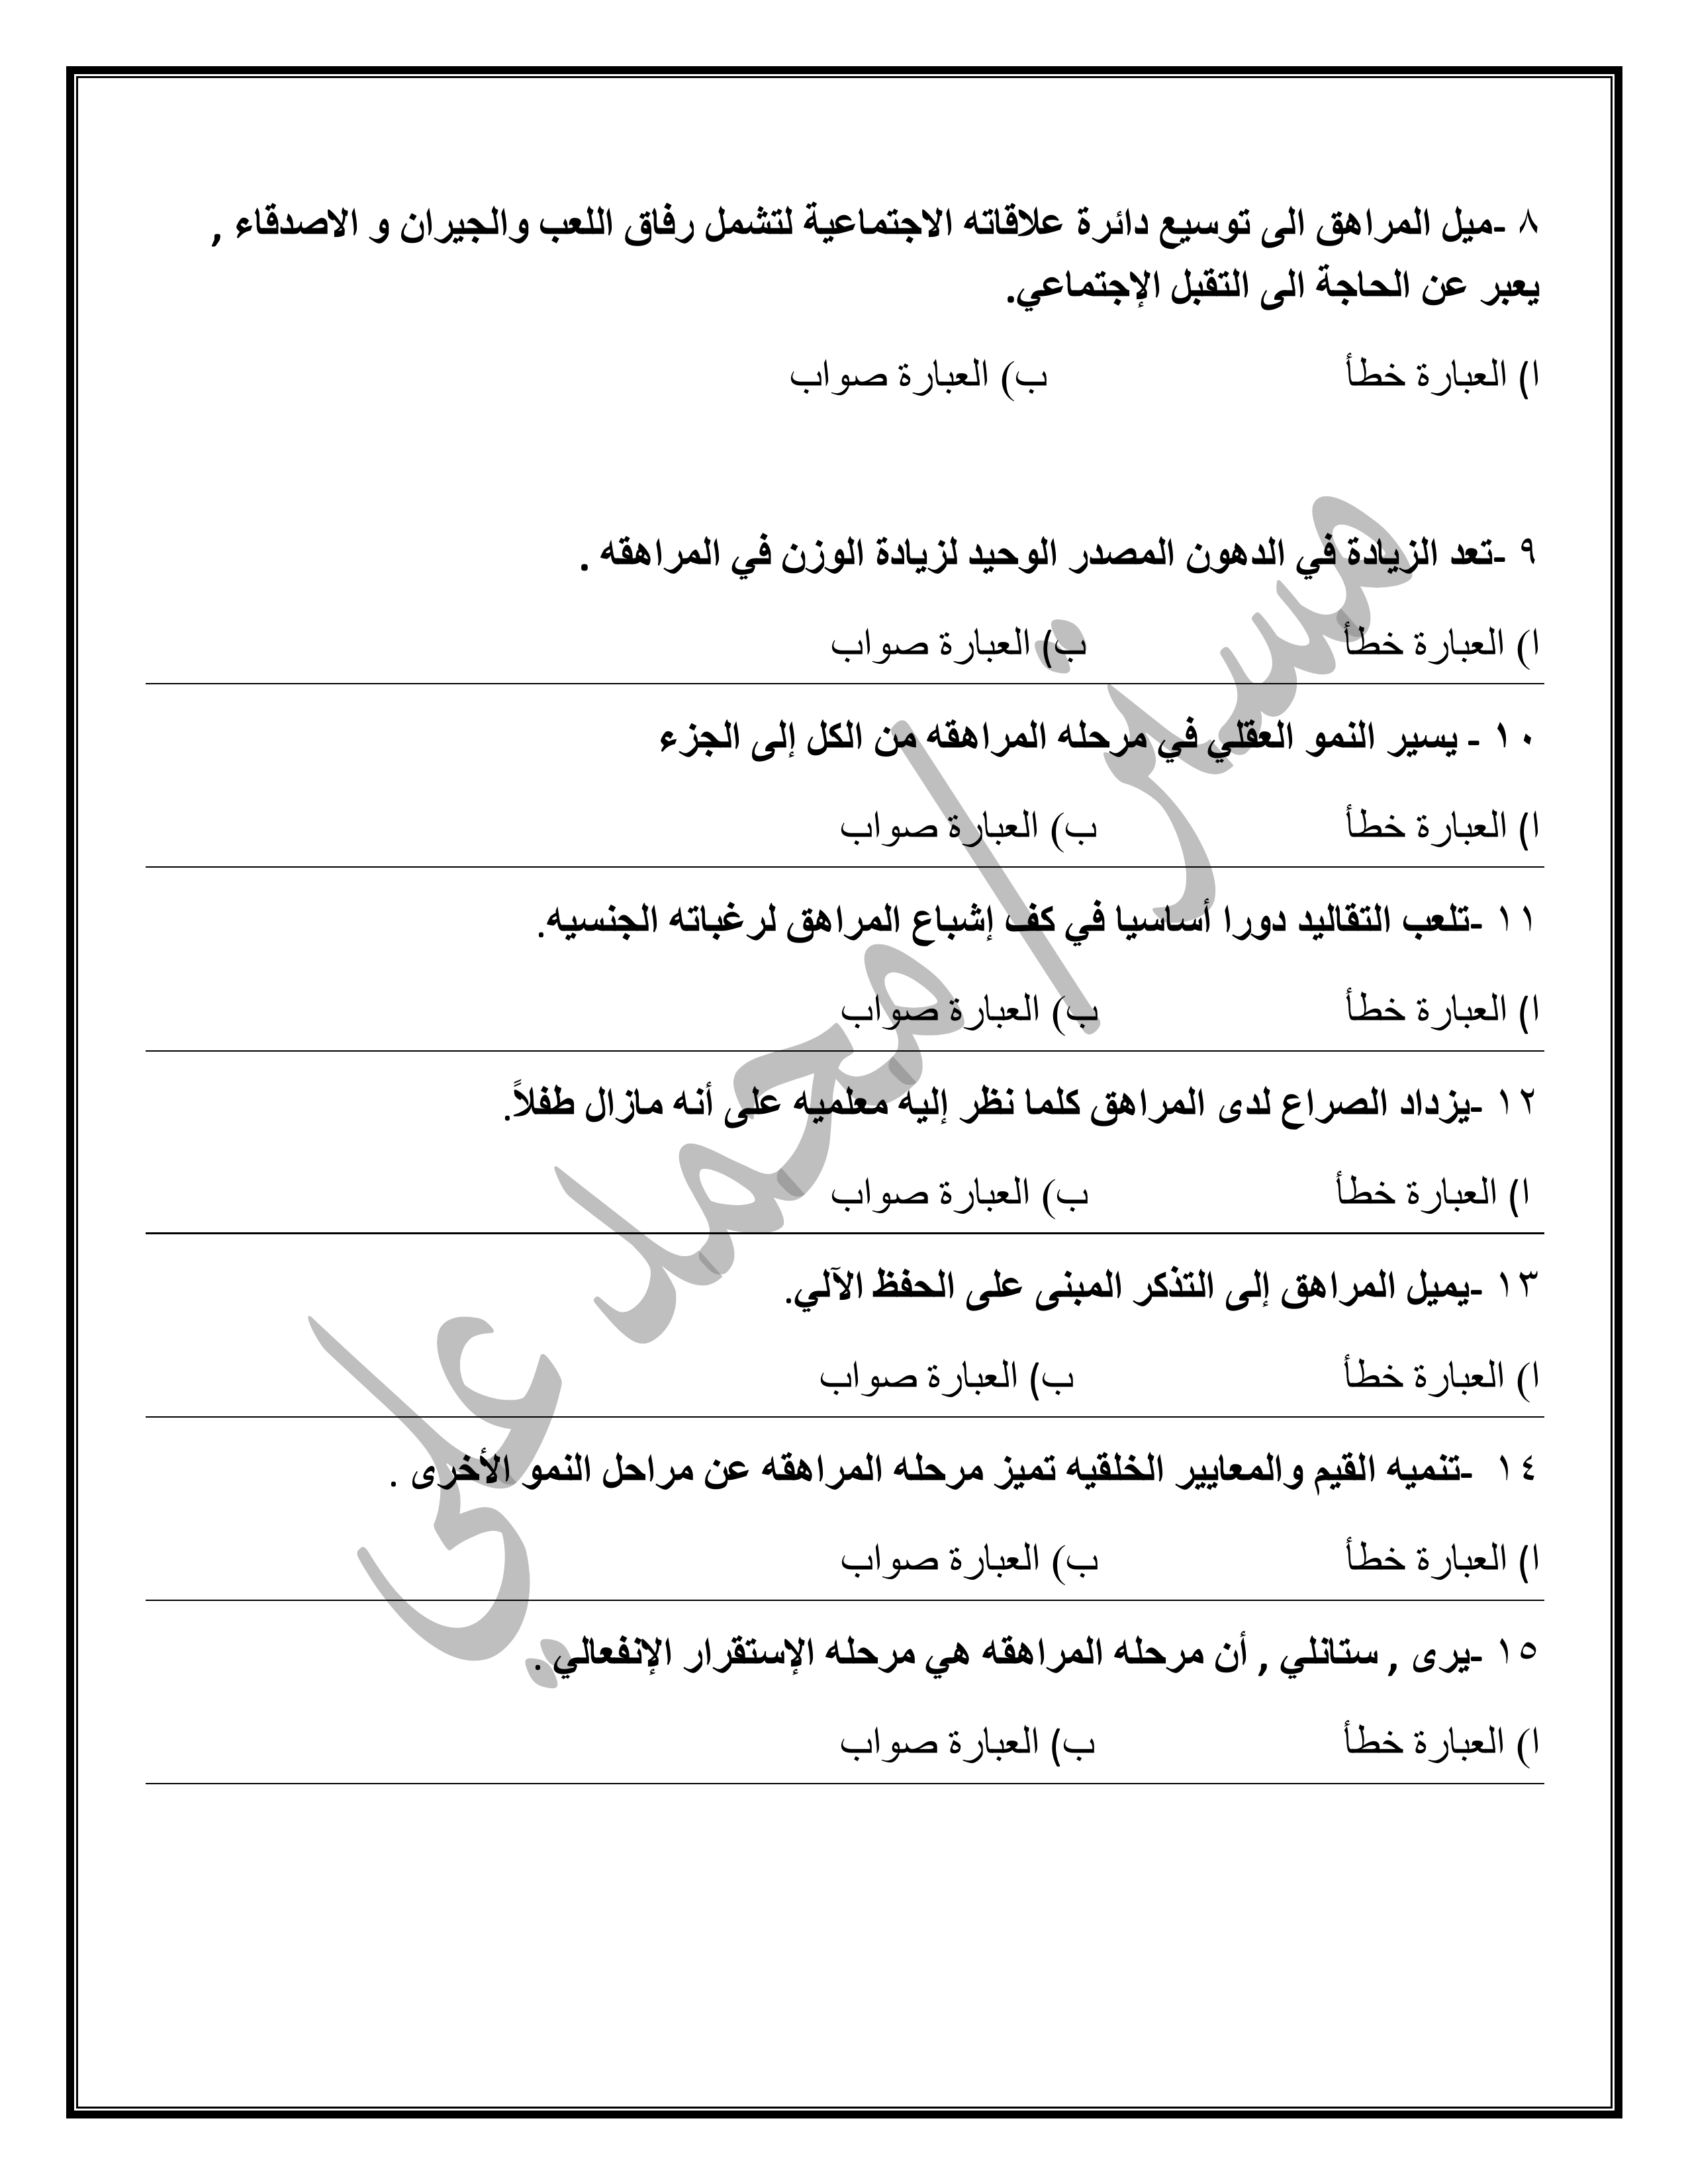 ٨ -ميل المراهق الى توسيع دائرة علاقاته الاجتماعية لتشمل رفاق اللعب والجيران و الاصدقاء ,
يعبر عن الحاجة الى التقبل الإجتماعي.
ا) العبارة خطأ ب) العبارة صواب
٩ -تعد الزيادة في الدهون المصدر الوحيد لزيادة الوزن في المراهقه .
ا) العبارة خطأ ب) العبارة صواب
١٠ - يسير النمو العقلي في مرحله المراهقه من الكل إلى الجزء
ا) العبارة خطأ ب) العبارة صواب
١١ -تلعب التقاليد دورا أساسيا في كف إشباع المراهق لرغباته الجنسيه.
ا) العبارة خطأ ب) العبارة صواب
١٢ -يزداد الصراع لدى المراهق كلما نظر إليه معلميه على أنه مازال طفلاً.
ا) العبارة خطأ ب) العبارة صواب
١٣ -يميل المراهق إلى التذكر المبنى على الحفظ الآلي.
ا) العبارة خطأ ب) العبارة صواب
١٤ -تنميه القيم والمعايير الخلقيه تميز مرحله المراهقه عن مراحل النمو الأخرى .
ا) العبارة خطأ ب) العبارة صواب
١٥ -يرى , ستانلي , أن مرحله المراهقه هي مرحله الإستقرار الإنفعالي .
ا) العبارة خطأ ب) العبارة صواب
مستر/محمد علي